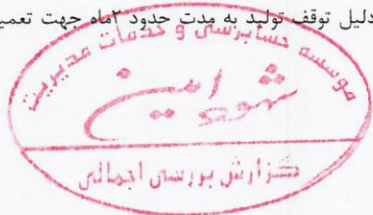 دلیل توقف تولید به مدت حدود ۲ماه جهت تعمیر
موسسه حسابرسی و خدمات مدیریت
شهود امین
گزارش بررسی اجمالی